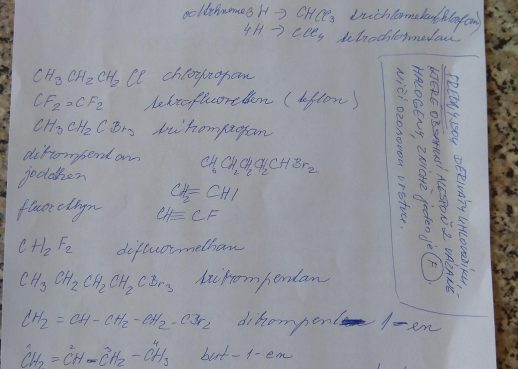 odtrhneme 3 H → CHCl3 trichlormetan (chloroform)
4H → CCl4 tetrachlormetan
CH3 CH2 CH2 Cl chlorpropan
CF2 = CF2 tetrafluorethen (teflon)
CH3 CH2 CBr3 tribrompropan
dibrompentan CH3 CH2 CH2 CH2 CHBr2
jodethen CH2 = CHI
fluorethyn CH ≡ CF
CH2 F2 difluormethan
CH3 CH2 CH2 CH2 CBr3 tribrompentan
CH2 = CH - CH2 - CH2 - CBr2 dibrompent 1-en
1 2 3 4
CH2 = CH - CH2 - CH3 but-1-en
FREONY JSOU DERIVÁTY UHLOVODÍKŮ,
KTERÉ OBSAHUJÍ ALESPOŇ 2 VÁZANÉ
HALOGENY, Z NICHŽ jeden je F
NIČÍ OZONOVOU VRSTVU.